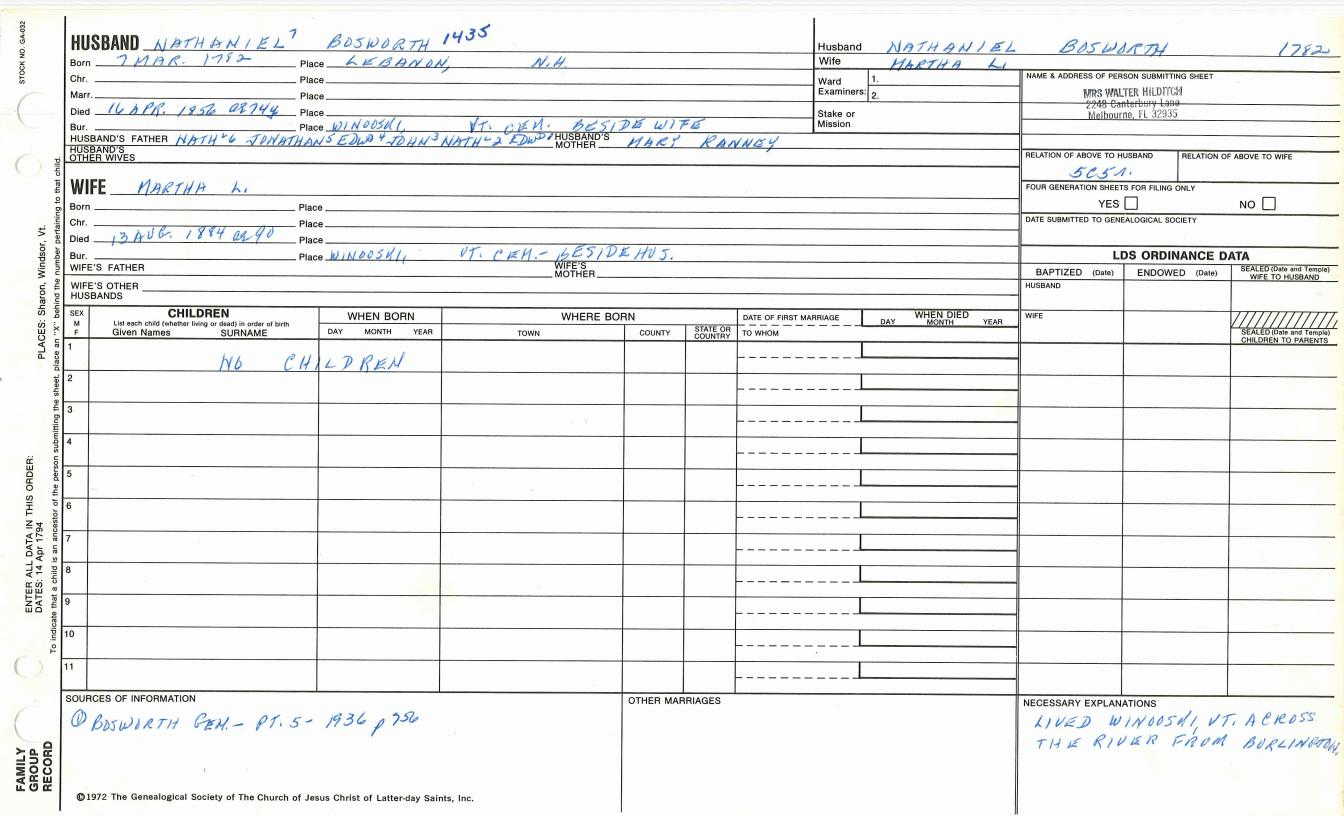 STOCK NO. GA-032
HUSBAND NATHANIEL⁷ BOSWORTH 1435
Born 7 MAR. 1782 Place LEBANON, N.H.
Chr. Place
Marr. Place
Died 16 APR. 1856 ae 74y Place
Bur. Place WINOOSKI, VT. CEM. BESIDE WIFE
HUSBAND'S FATHER NATHˡ6 JONATHAN⁵ EDWᵈ4 JOHN³ NATHˡ2 EDWᵈ1 HUSBAND'S MOTHER MARY RANNEY
HUSBAND'S OTHER WIVES
WIFE MARTHA L.
Born Place
Chr. Place
Died 13 AUG. 1884 ae 90 Place
Bur. Place WINOOSKI, VT. CEM.- BESIDE HUS.
WIFE'S FATHER WIFE'S MOTHER
WIFE'S OTHER HUSBANDS
Husband NATHANIEL BOSWORTH 1782
Wife MARTHA L.
Ward Examiners: 1.
2.
Stake or Mission
NAME & ADDRESS OF PERSON SUBMITTING SHEET
MRS WALTER HILDITCH
2248 Canterbury Lane
Melbourne, FL 32935
RELATION OF ABOVE TO HUSBAND RELATION OF ABOVE TO WIFE
5C5r.
FOUR GENERATION SHEETS FOR FILING ONLY
YES NO
DATE SUBMITTED TO GENEALOGICAL SOCIETY
LDS ORDINANCE DATA
BAPTIZED (Date) ENDOWED (Date) SEALED (Date and Temple) WIFE TO HUSBAND
HUSBAND
WIFE
SEALED (Date and Temple) CHILDREN TO PARENTS
SEX M F
CHILDREN
List each child (whether living or dead) in order of birth
Given Names SURNAME
WHEN BORN
DAY MONTH YEAR
WHERE BORN
TOWN COUNTY STATE OR COUNTRY
DATE OF FIRST MARRIAGE
TO WHOM
WHEN DIED
DAY MONTH YEAR
1 NO CHILDREN
2
3
4
5
6
7
8
9
10
11
SOURCES OF INFORMATION
① BOSWORTH GEN.- PT. 5- 1936 p756
OTHER MARRIAGES
NECESSARY EXPLANATIONS
LIVED WINOOSKI, VT. ACROSS
THE RIVER FROM BURLINGTON.
©1972 The Genealogical Society of The Church of Jesus Christ of Latter-day Saints, Inc.
FAMILY GROUP RECORD
ENTER ALL DATA IN THIS ORDER:
DATES: 14 Apr 1794
PLACES: Sharon, Windsor, Vt.
To indicate that a child is an ancestor of the person submitting the sheet, place an "X" behind the number pertaining to that child.